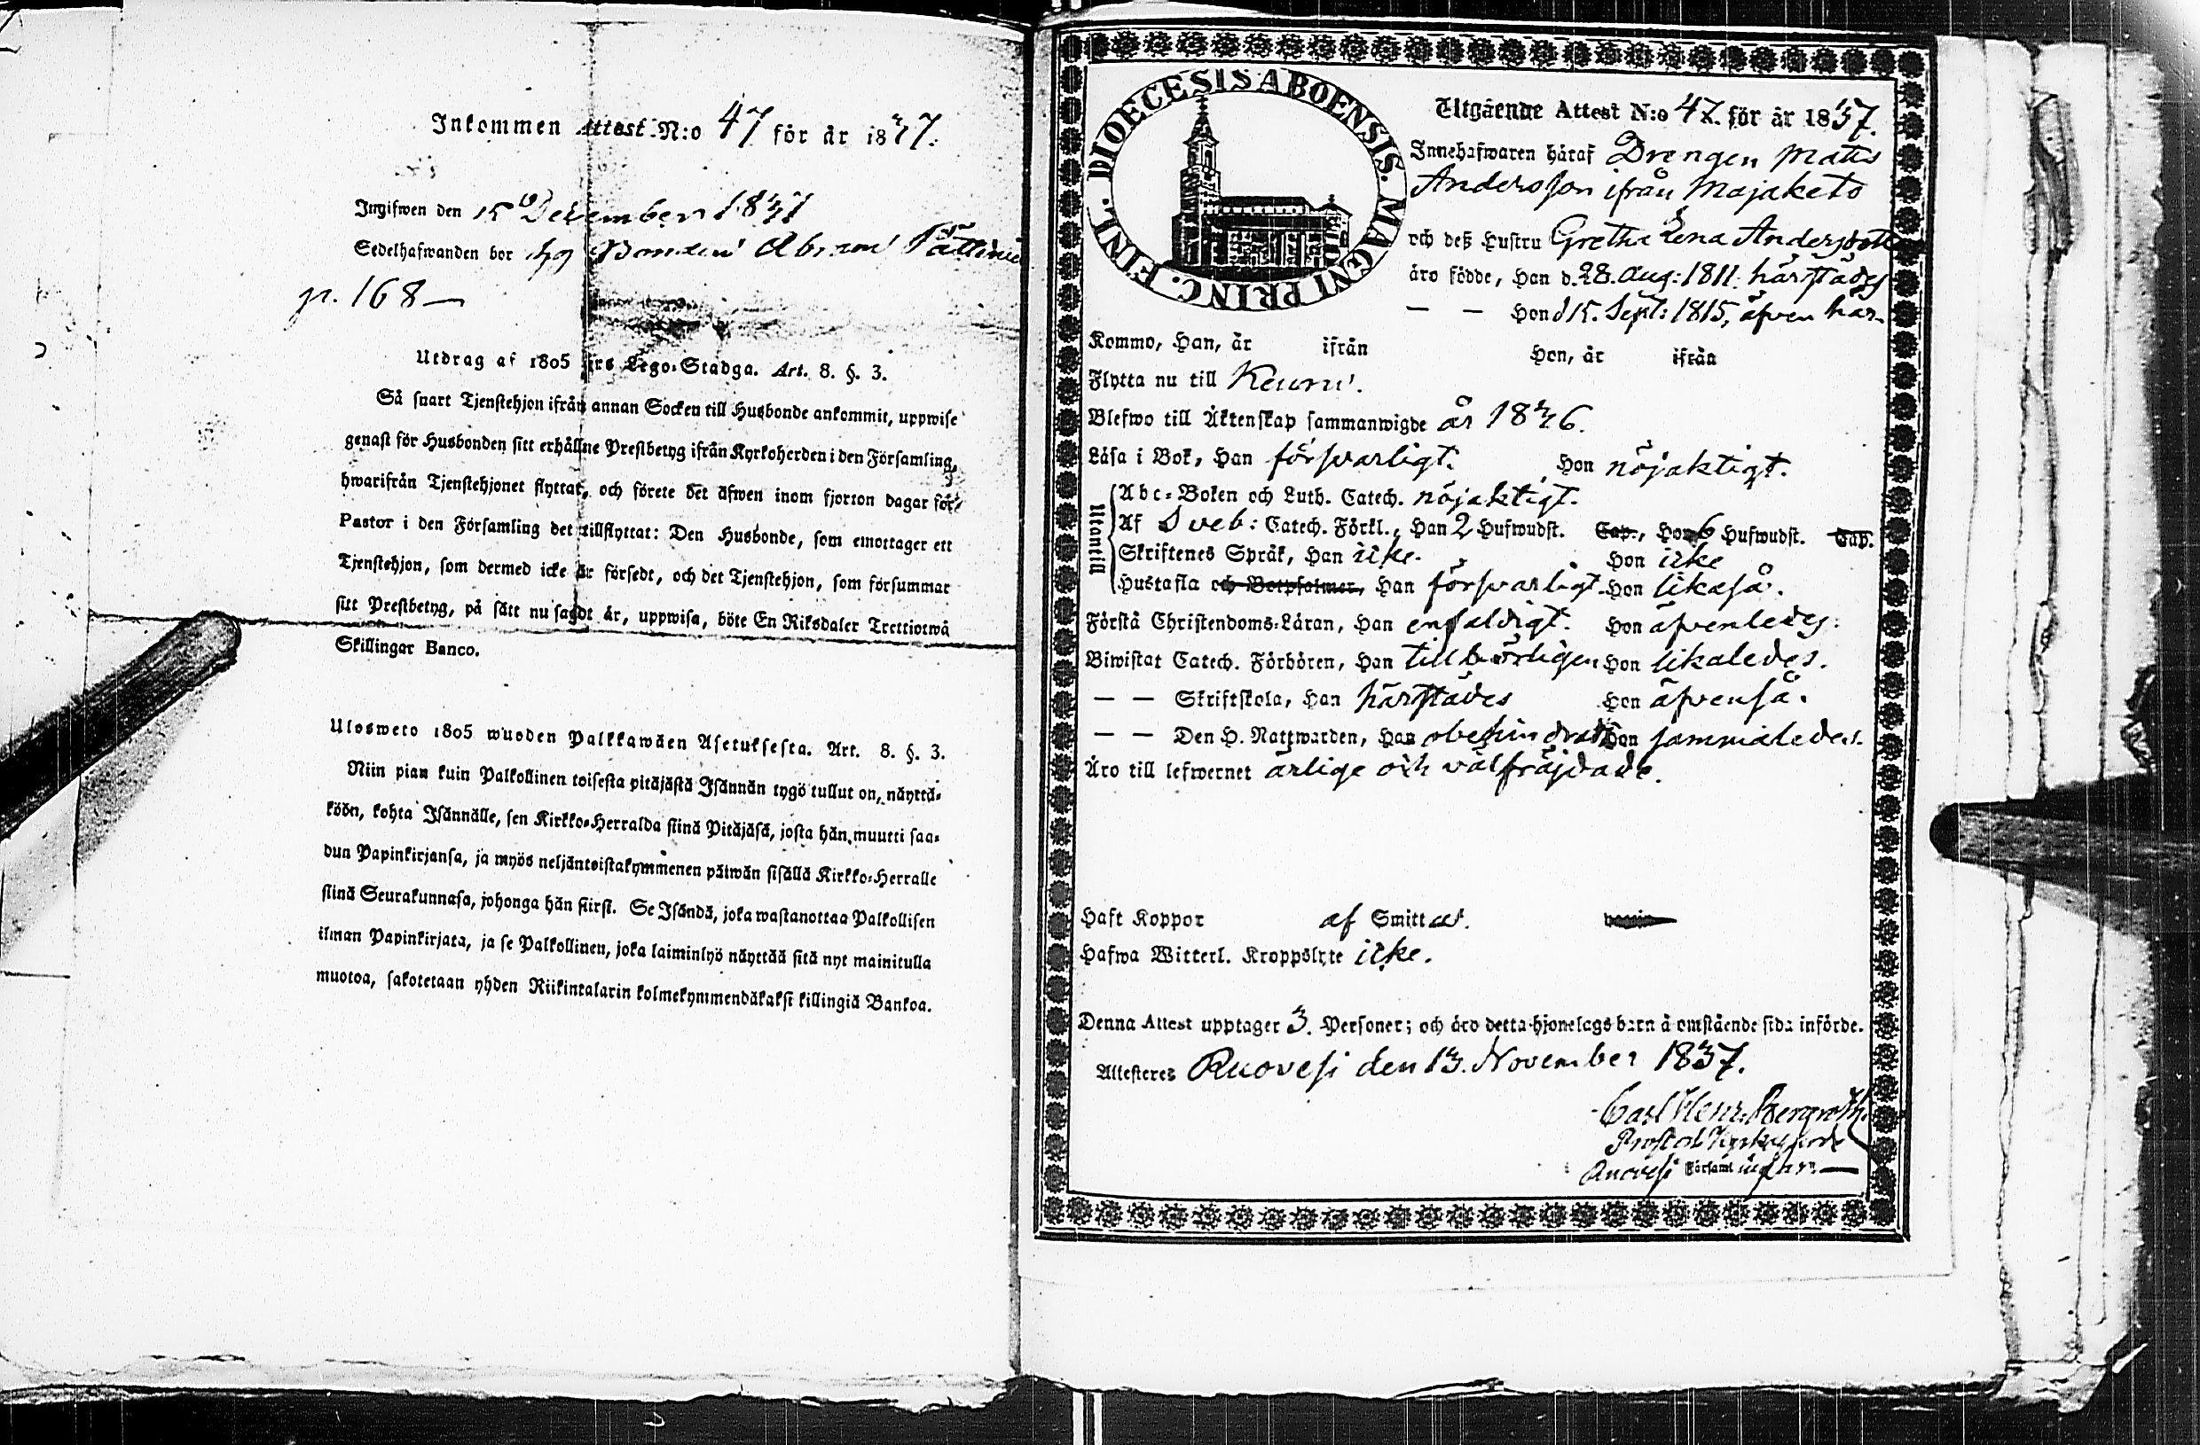 Inkommen Attest N:o 47 för år 1837.
Ingifwen den 15 December 1837
Sedelhafwanden bor hos Bonden Abram
p. 168 —
Utdrag af 1805 års Lego-Stadga. Art. 8. §. 3.
Så snart Tjenstehjon ifrån annan Socken till Husbonde ankommit, uppwise
genast för Husbonden sitt erhållne Prestbetyg ifrån Kyrkoherden i den Församling,
hwarifrån Tjenstehjonet flyttat, och förete det äfwen inom fjorton dagar för
Pastor i den Församling det tillflyttat: Den Husbonde, som emottager ett
Tjenstehjon, som dermed icke är försedt, och det Tjenstehjon, som försummar
sitt Prestbetyg, på sätt nu sagdt är, uppwisa, böte En Riksdaler Trettiotwå
Skillingar Banco.
Ulosweto 1805 wuoden Palkkawäen Asetuksesta. Art. 8. §. 3.
Niin pian kuin Palkollinen toisesta pitäjästä Isännän tygö tullut on, näyttä-
köön, kohta Isännälle, sen Kirkko-Herralda siinä Pitäjäsä, josta hän muutti saa-
dun Papinkirjansa, ja myös neljäntoistakymmenen päiwän sisällä Kirkko-Herralle
siinä Seurakunnasa, johonga hän siirsi. Se Isändä, joka wastanottaa Palkollisen
ilman Papinkirjata, ja se Palkollinen, joka laiminlyö näyttää sitä nyt mainitulla
muotoa, sakotetaan yhden Riikintalarin kolmekymmendäkaksi killingiä Bankoa.
DIOECESIS ABOENSIS. MAGNI PRINC. FINL.
Utgående Attest N:o 47. för år 1837.
Innehafwaren häraf Drengen Matts
Andersson ifrån Majaketo
och deß Hustru Gretha Lena Andersdotter
äro födde, Han d. 28. Aug: 1811. härstädes
— — Hon d 15. Sept: 1815, äfven här.
Kommo, Han, år ifrån Hon, år ifrån
Flytta nu till Keuru.
Blefwo till Äktenskap sammanwigde år 1836.
Läsa i Bok, Han försvarligt. Hon nöjaktigt.
Utantill
Abc-Boken och Luth. Catech. nöjaktigt.
Af Sveb: Catech. Förkl., Han 2 Hufwudst. Cap., Hon 6 Hufwudst. Cap.
Skriftenes Språk, Han icke. Hon icke
Hustafla och Botpsalmer, Han försvarligt. Hon likaså.
Förstå Christendoms-Läran, Han enfaldigt. Hon äfvenledes:
Biwistat Catech. Förhören, Han tillbörligen Hon likaledes.
— — Skriftskola, Han härstädes Hon äfvenså.
— — Den H. Nattwarden, Han obehindrad Hon sammaledes.
Äro till lefwernet ärlige och välfräjdade.
Haft Koppor af Smitta.
Hafwa Witterl. Kroppslyte icke.
Denna Attest upptager 3. Personer; och äro detta hjonelags barn å omstående sida införde.
Attesteras Ruovesi den 13. November 1837.
Carl Henr. Bergroth.
Prost och Kyrkoherde
Ruovesi Församl